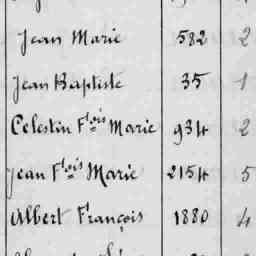 Jean Marie 582 2
Jean Baptiste 35 1
Celestin Fˡᵒⁱˢ Marie 934 2
Jean Fˡᵒⁱˢ Marie 2154 5
Albert François 1880 4